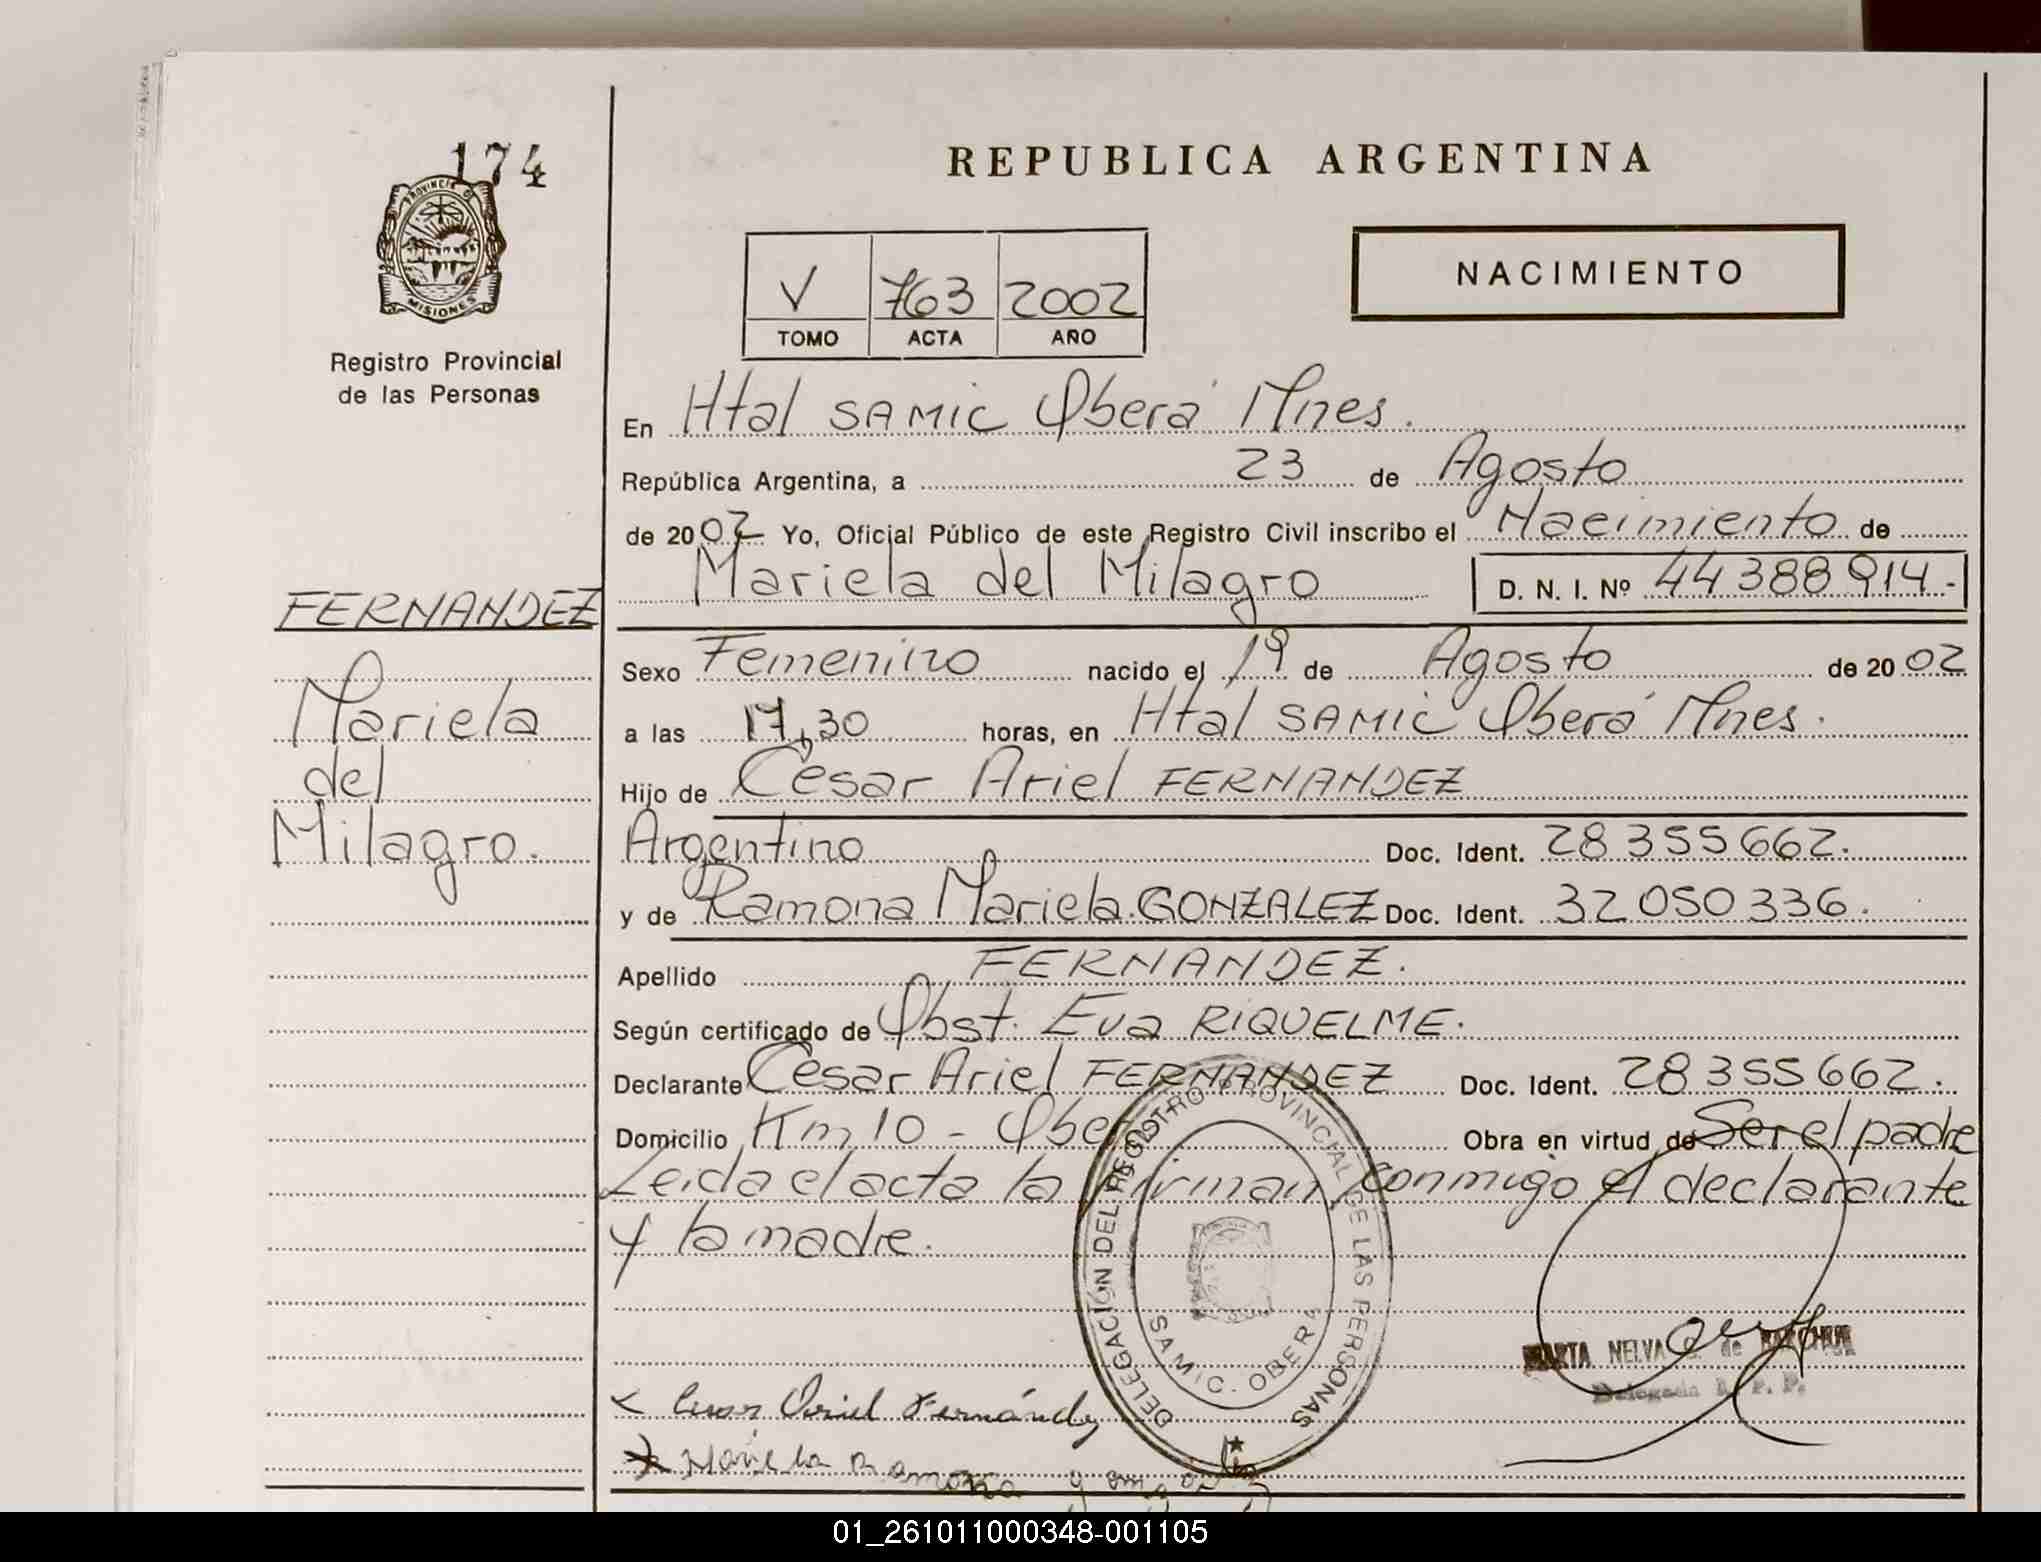 174
PROVINCIA DE
MISIONES
Registro Provincial
de las Personas
FERNANDEZ
Mariela
del
Milagro.
REPUBLICA ARGENTINA
V 763 2002
TOMO ACTA AÑO
NACIMIENTO
En Htal SAMIC Oberá Mnes.
República Argentina, a 23 de Agosto
de 2002 Yo, Oficial Público de este Registro Civil inscribo el Nacimiento de
Mariela del Milagro D. N. I. Nº 44388914.-
Sexo Femenino nacido el 19 de Agosto de 2002
a las 17,30 horas, en Htal SAMIC Oberá Mnes.
Hijo de Cesar Ariel FERNANDEZ
Argentino Doc. Ident. 28355662.
y de Ramona Mariela GONZALEZ Doc. Ident. 32050336.
Apellido FERNANDEZ.
Según certificado de Obst. Eva RIQUELME.
Declarante Cesar Ariel FERNANDEZ Doc. Ident. 28355662.
Domicilio Km 10 - Oberá Obra en virtud de Ser el padre
Leida el acta la firman conmigo el declarante
y la madre.
DELEGACIÓN DEL REGISTRO PROVINCIAL DE LAS PERSONAS
SAMIC. OBERA
MARTA NELVA de
Delegada R. P. P.
Cesar Ariel Fernández
Mariela Ramona
01_261011000348-001105